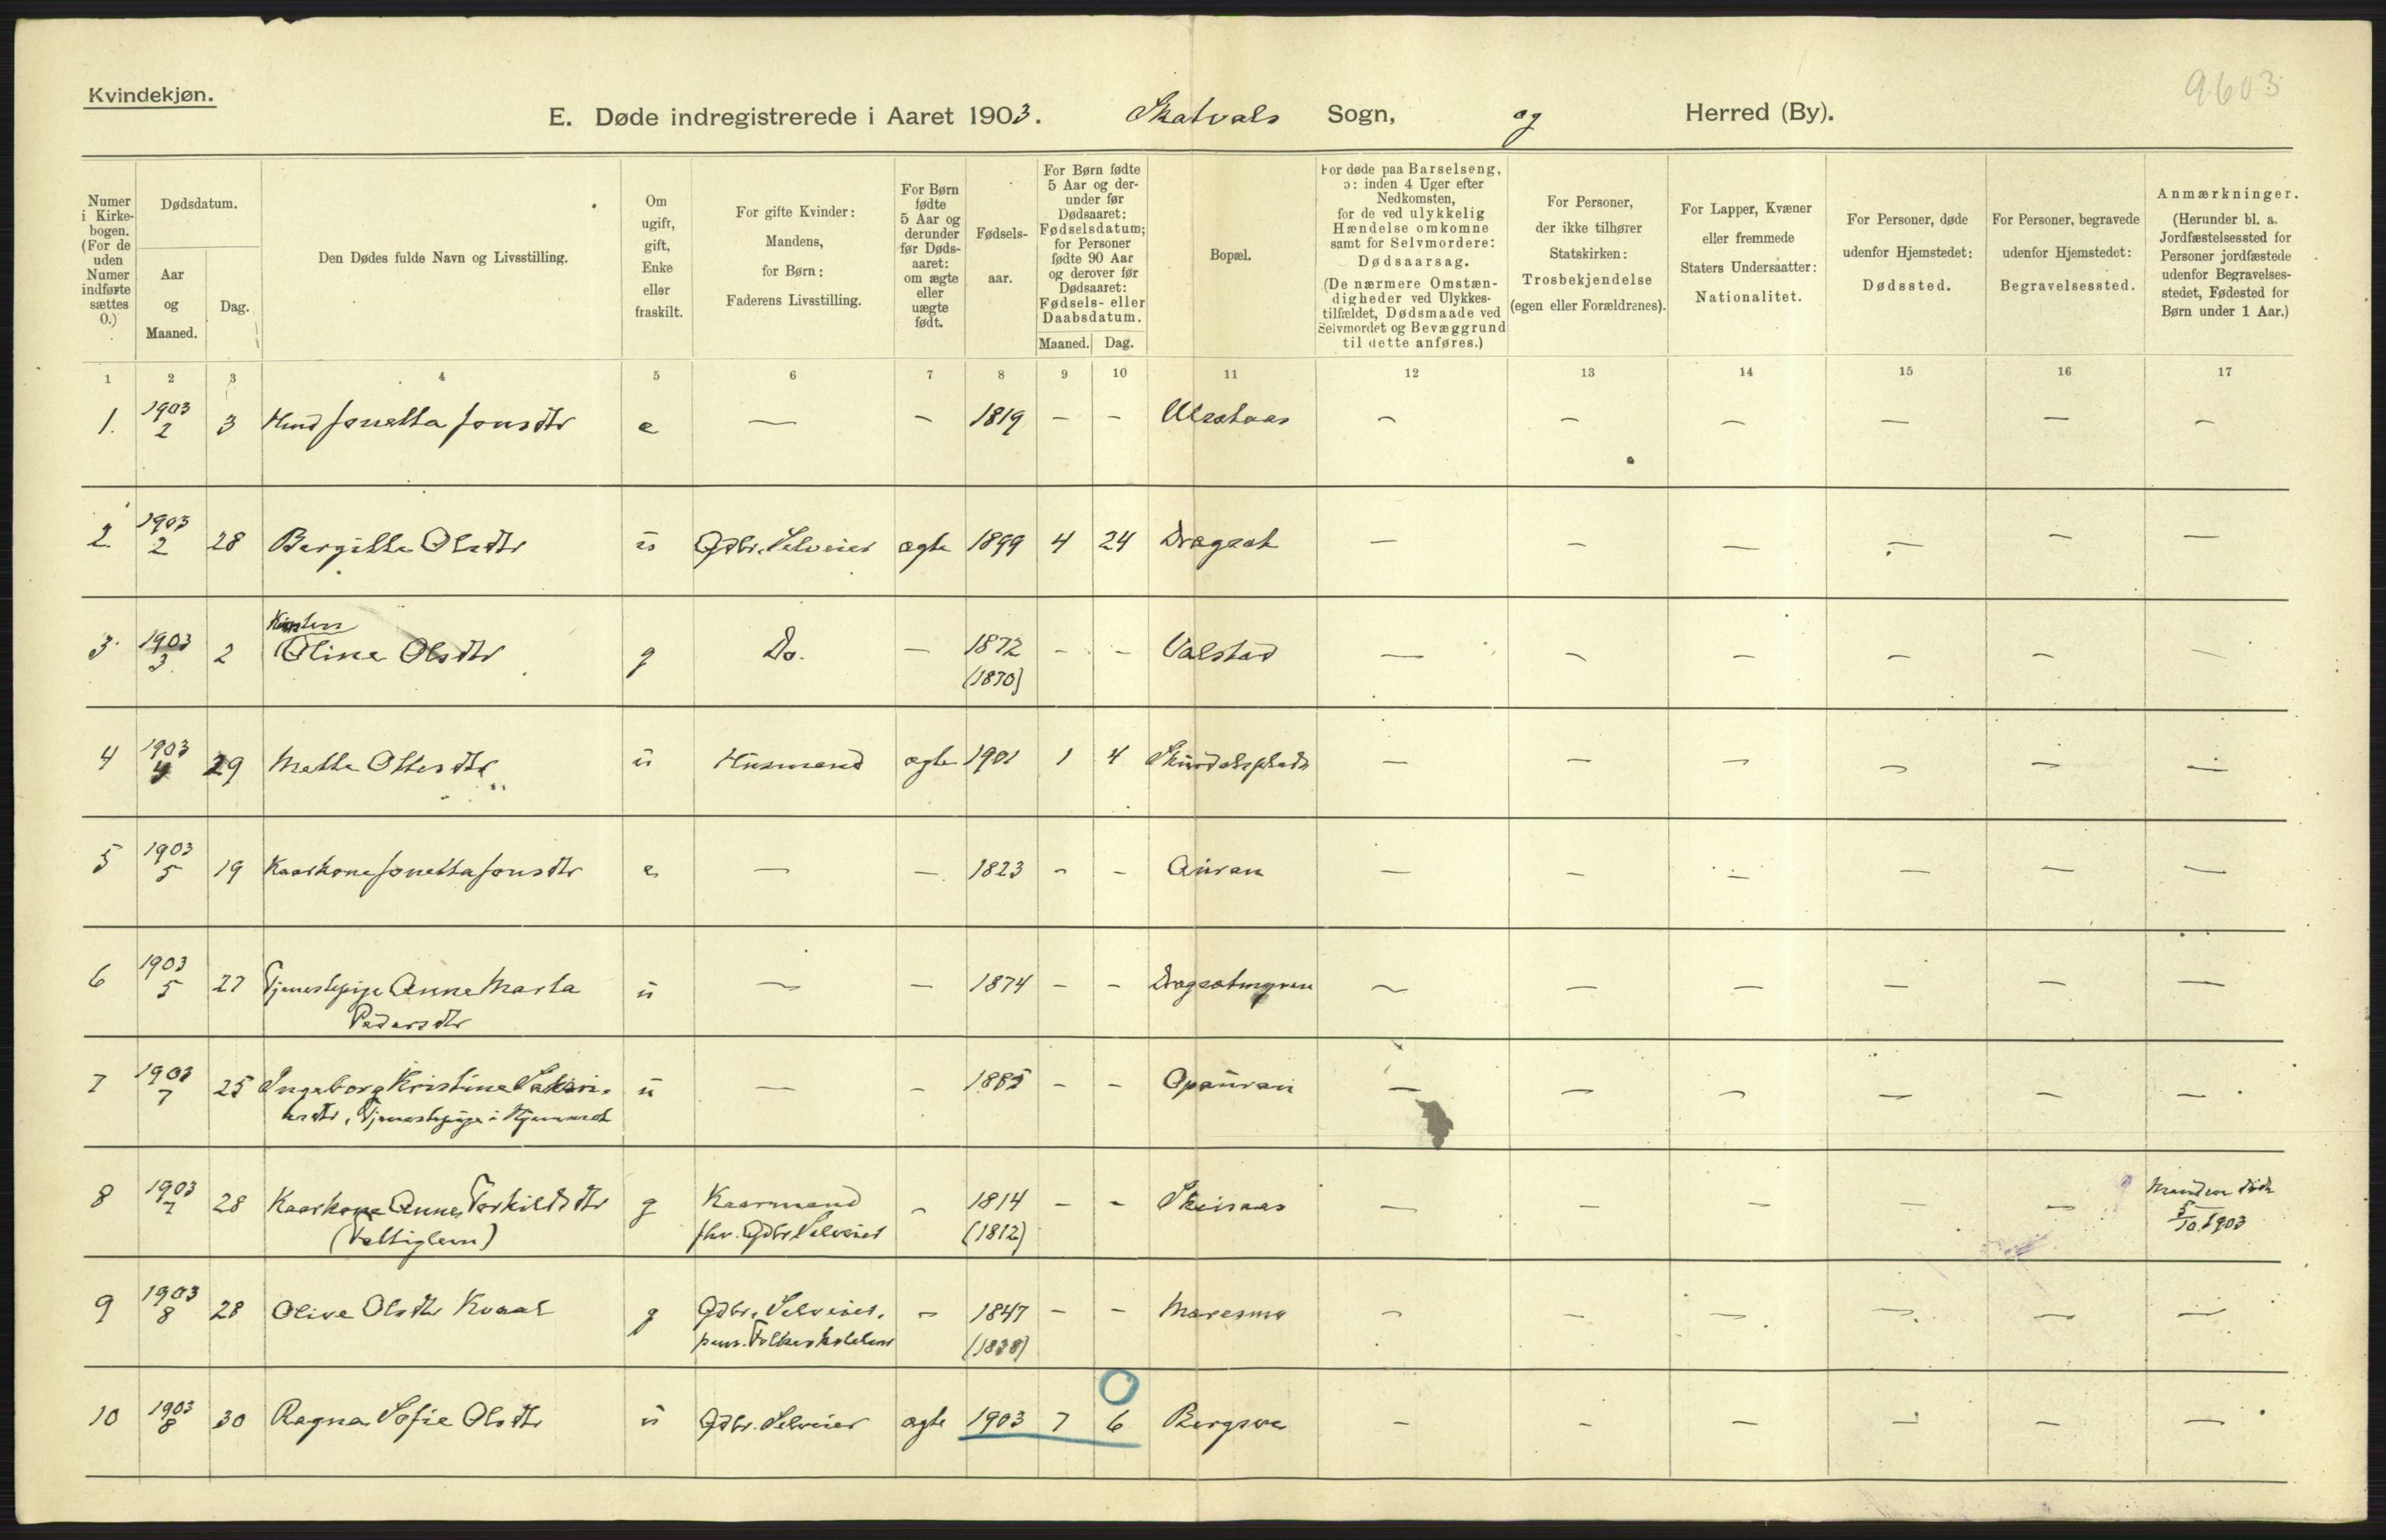 Kvindekjøn.
9603
E. Døde indregistrerede i Aaret 1903. Skatvals Sogn, og Herred (By).
Numer i Kirkebogen. (For de uden Numer indførte sættes 0.)
Dødsdatum.
Aar og Maaned.
Dag.
Den Dødes fulde Navn og Livsstilling.
Om ugift, gift, Enke eller fraskilt.
For gifte Kvinder: Mandens, for Børn: Faderens Livsstilling.
For Børn fødte 5 Aar og derunder før Dødsaaret: om ægte eller uægte født.
Fødselsaar.
For Børn fødte 5 Aar og derunder før Dødsaaret: Fødselsdatum; for Personer fødte 90 Aar og derover før Dødsaaret: Fødsels- eller Daabsdatum.
Maaned. Dag.
Bopæl.
For døde paa Barselseng, ɔ: inden 4 Uger efter Nedkomsten, for de ved ulykkelig Hændelse omkomne samt for Selvmordere: Dødsaarsag. (De nærmere Omstændigheder ved Ulykkestilfældet, Dødsmaade ved Selvmordet og Bevæggrund til dette anføres.)
For Personer, der ikke tilhører Statskirken: Trosbekjendelse (egen eller Forældrenes).
For Lapper, Kvæner eller fremmede Staters Undersaatter: Nationalitet.
For Personer, døde udenfor Hjemstedet: Dødssted.
For Personer, begravede udenfor Hjemstedet: Begravelsessted.
Anmærkninger. (Herunder bl. a. Jordfæstelsessted for Personer jordfæstede udenfor Begravelsesstedet, Fødested for Børn under 1 Aar.)
1 2 3 4 5 6 7 8 9 10 11 12 13 14 15 16 17
1. 1903 2 3 Jonetta Jonsdtr e — — 1819 — — — — — — — —
2 1903 2 28 Bergitte Olsdtr ú Gdbr. Selveier ægte 1899 4 24 Dragset — — — — — —
Kirsten
3 1903 3 2 Oline Olsdtr g Do. — 1872 — — Valstad — — — — — —
(1870)
4 1903 4 29 Mette Ottersdtr ú Husmand ægte 1901 1 4 Skúrdalsplads — — — — — —
5 1903 5 19 Kaarkone Jonetta Jonsdtr e — — 1823 — — Aúran — — — — — —
6 1903 5 27 Tjenestepige Anne Marta ú — — 1874 — — Dragsetmyren — — — — — —
Pedersdtr
7 1903 7 25 Ingeborg Kristine Sakari- ú — — 1885 — — Opaúran — — — — — —
asdtr, Tjenestepige i Hjemmet
8 1903 7 28 Kaarkone Anne Torkildsdtr g Kaarmand — 1814 — — Skeisaas — — — — — Manden døde
(Vattiglem) fhv. Gdbr. Selveier (1812) 5/10 1903
9 1903 8 28 Olive Olsdtr Kvaal g Gdbr. Selveier, — 1847 — — Maresmo — — — — — —
pens. Folkeskolelærer (1838)
10 1903 8 30 Ragna Sofie Olsdtr ú Gdbr. Selveier ægte 1903 7 6 — — — — — —